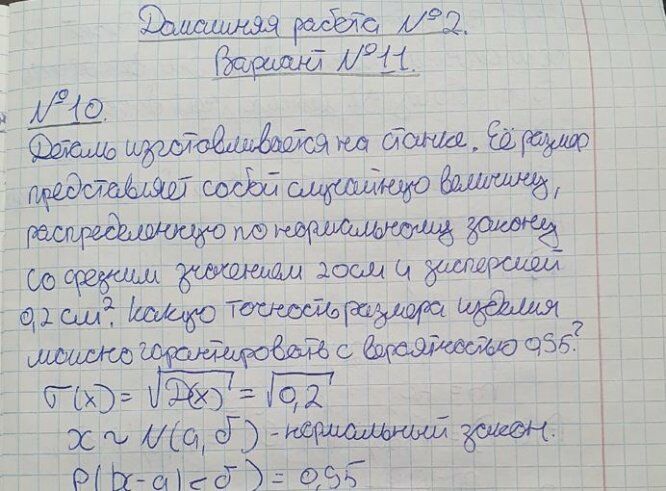 Домашняя работа №2.
Вариант №11.
№10.
Деталь изготавливается на станке. Её размер
представляет собой случайную величину,
распределенную по нормальному закону
со средним значением 20см и дисперсией
0,2 см². Какую точность размера изделия
можно гарантировать с вероятностью 0,95?
σ(x) = √D(x) = √0,2
x ~ N(a, σ) - нормальный закон.
P(|x-a| < δ) = 0,95